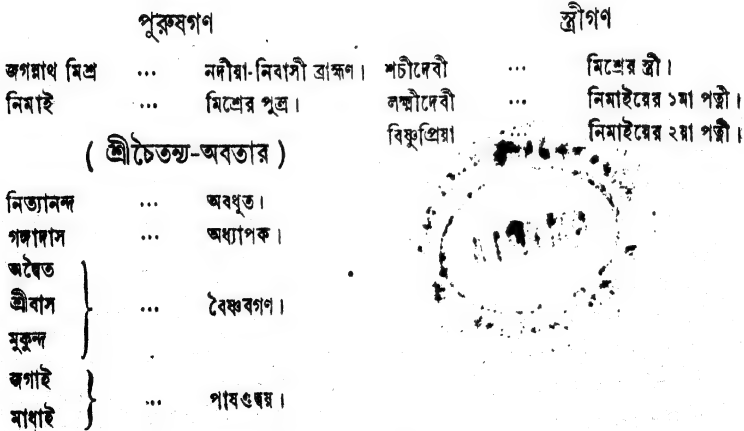 পুরুষগণ
জগন্নাথ মিশ্র ... নদীয়া-নিবাসী ব্রাহ্মণ।
নিমাই ... মিশ্রের পুত্র।
( শ্রীচৈতন্য-অবতার )
নিত্যানন্দ ... অবধূত।
গঙ্গাদাস ... অধ্যাপক।
অদ্বৈত
শ্রীবাস ... বৈষ্ণবগণ।
মুকুন্দ
জগাই
... পাষণ্ডদ্বয়।
মাধাই
স্ত্রীগণ
শচীদেবী ... মিশ্রের স্ত্রী।
লক্ষ্মীদেবী ... নিমাইয়ের ১মা পত্নী।
বিষ্ণুপ্রিয়া ... নিমাইয়ের ২য়া পত্নী।